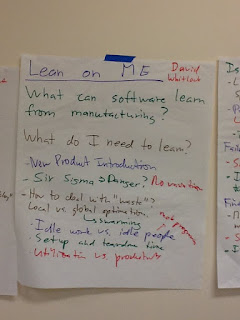 Lean on ME
David Whitlock
What can software learn
from manufacturing?
What do I need to learn?
- New Product Introduction
- Six Sigma → Danger? No variation
- How to deal with "waste"?
Local vs global optimization
↳ swarming
- Idle work vs. idle people
- Setup and teardown time
Utilization vs. productivity
Is